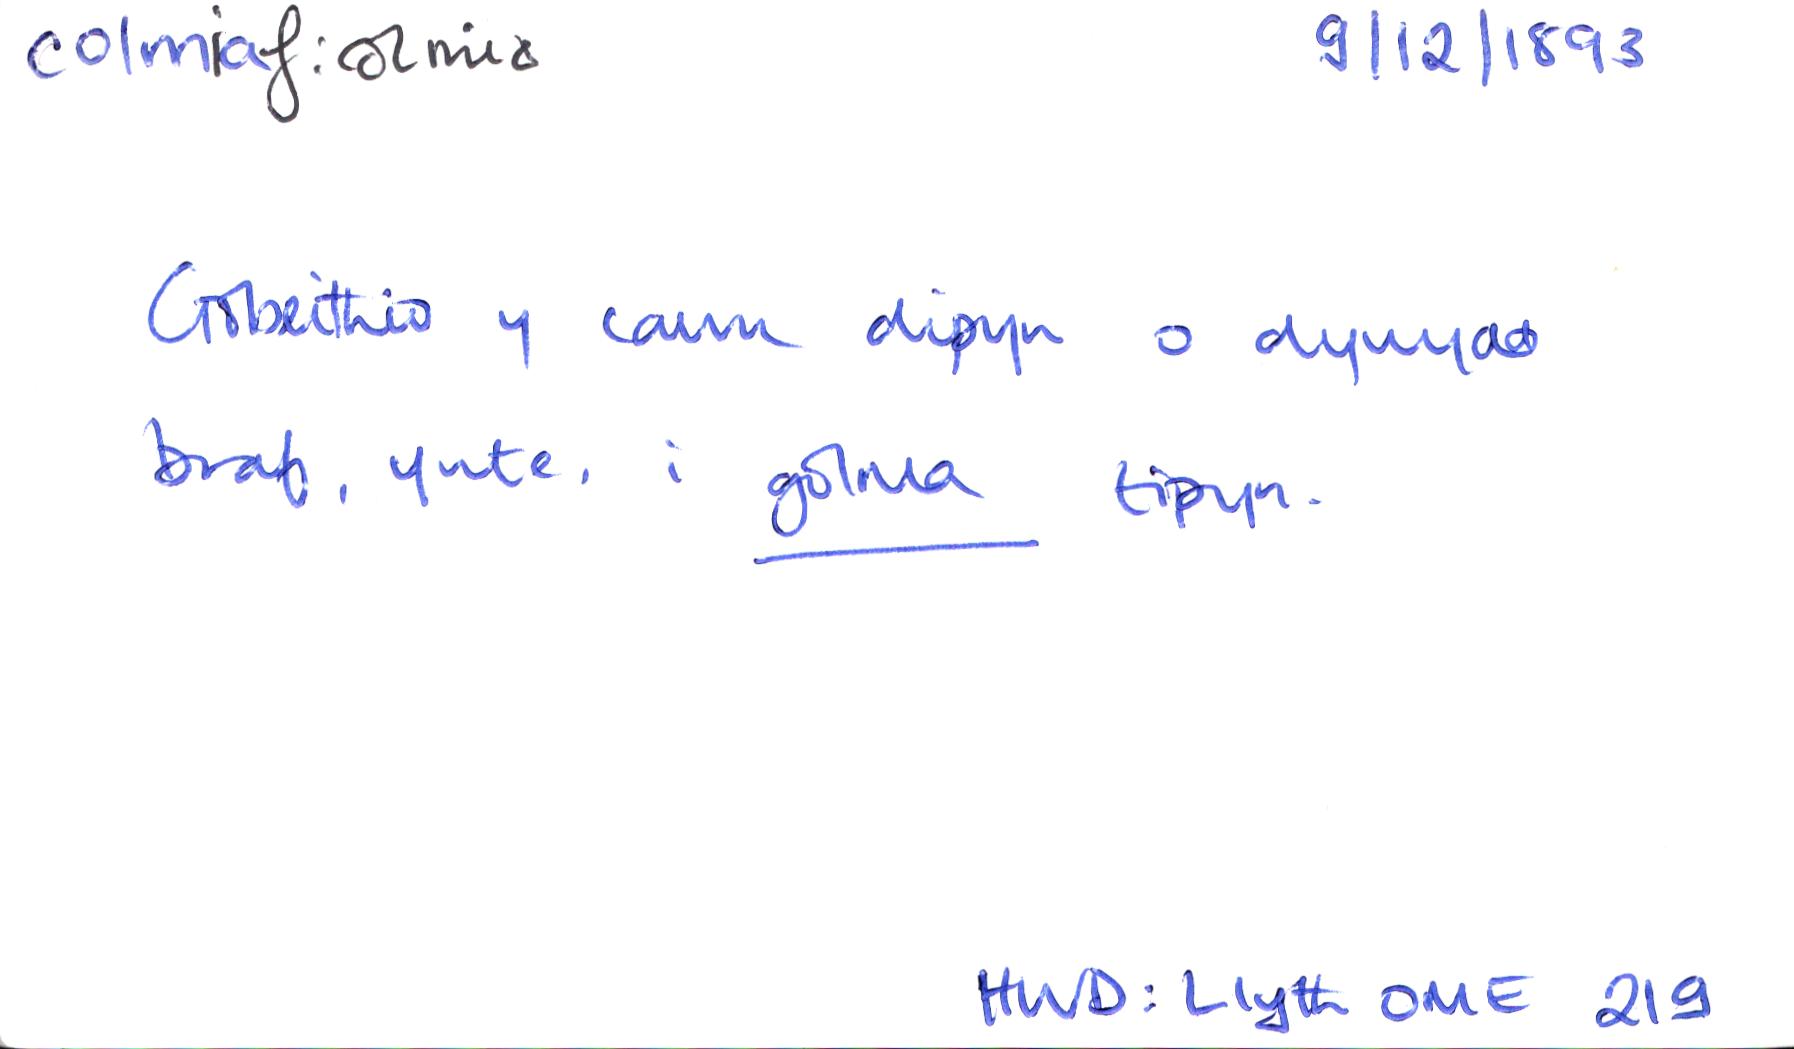 colmiaf: colmio
9/12/1893
Gobeithio y cawn dipyn o dywydd
braf, ynte, i golmia tipyn.
HWD: Llyth OME 219